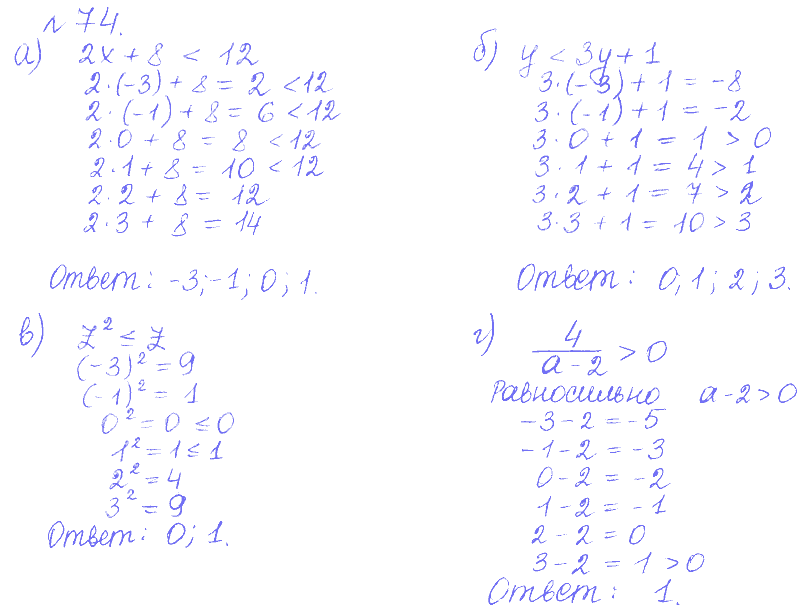 № 74.
а) 2x + 8 < 12
2·(-3) + 8 = 2 < 12
2·(-1) + 8 = 6 < 12
2·0 + 8 = 8 < 12
2·1 + 8 = 10 < 12
2·2 + 8 = 12
2·3 + 8 = 14
Ответ: -3; -1; 0; 1.
б) y < 3y + 1
3·(-3) + 1 = -8
3·(-1) + 1 = -2
3·0 + 1 = 1 > 0
3·1 + 1 = 4 > 1
3·2 + 1 = 7 > 2
3·3 + 1 = 10 > 3
Ответ: 0; 1; 2; 3.
в) z² ≤ z
(-3)² = 9
(-1)² = 1
0² = 0 ≤ 0
1² = 1 ≤ 1
2² = 4
3² = 9
Ответ: 0; 1.
г) 4/(a - 2) > 0
Равносильно a - 2 > 0
-3 - 2 = -5
-1 - 2 = -3
0 - 2 = -2
1 - 2 = -1
2 - 2 = 0
3 - 2 = 1 > 0
Ответ: 1.